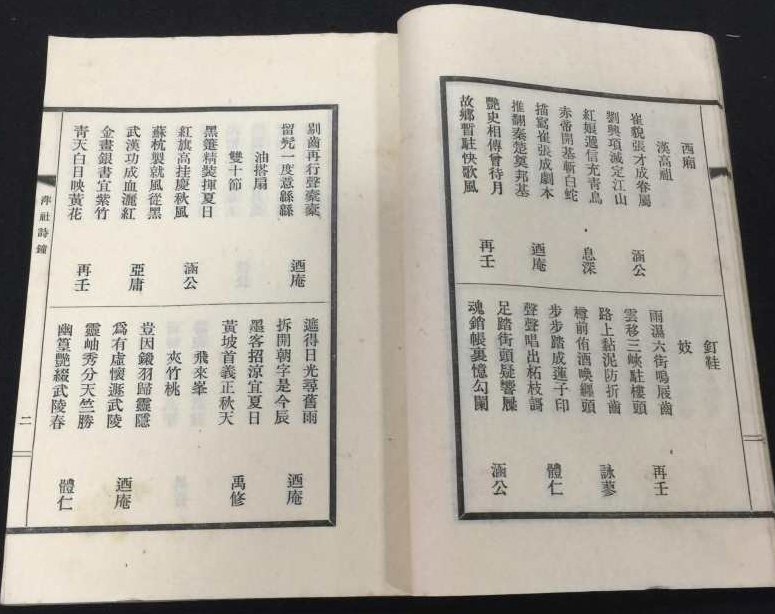 西廂
漢高祖
崔貌張才成眷屬
劉興項滅定江山
涵公
紅娘遞信充青鳥
赤帝開基斬白蛇
息深
描寫崔張成劇本
推翻秦楚奠邦基
迺庵
艷史相傳曾待月
故鄉暫駐快歌風
再壬
釘鞋
妓
雨濕六街鳴屐齒
雲移三峽駐樓頭
再壬
路上黏泥防折齒
樽前侑酒喚纏頭
詠蓼
步步踏成蓮子印
聲聲唱出柘枝謌
體仁
足踏街頭疑響屧
魂銷帳裏憶勾闌
涵公
剔齒再行聲橐橐
留髠一度意緜緜
迺庵
油搭扇
雙十節
黑箑精裝揮夏日
紅旗高挂慶秋風
涵公
蘇杭製就風從黑
武漢功成血灑紅
亞庸
金畫銀書宜紫竹
青天白日映黃花
再壬
遮得日光尋舊雨
拆開朝字是今辰
迺庵
墨客招涼宜夏日
黃坡首義正秋天
禹修
飛來峯
夾竹桃
豈因鎩羽歸靈隱
爲有虛懷遯武陵
迺庵
靈岫秀分天竺勝
幽篁艷綴武陵春
體仁
萍社詩鐘
二